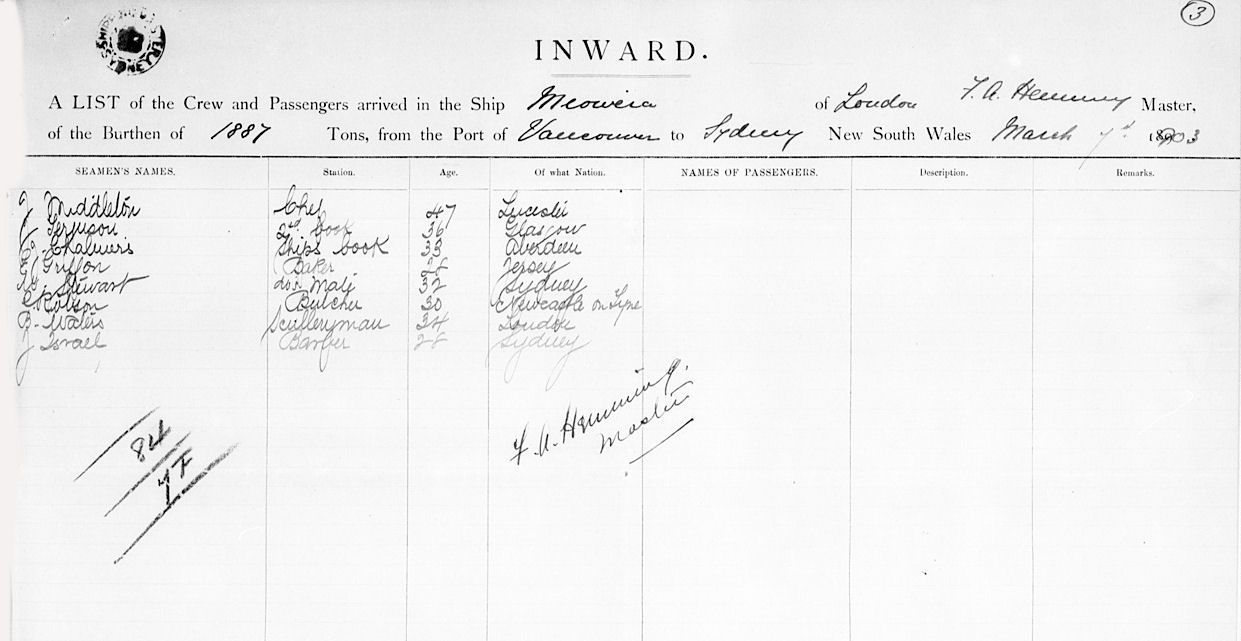 3
INWARD.
A LIST of the Crew and Passengers arrived in the Ship Miowera of London F. A. Hemming Master,
of the Burthen of 1887 Tons, from the Port of Vancouver to Sydney New South Wales March 7th 1903
SEAMEN'S NAMES. Station. Age. Of what Nation. NAMES OF PASSENGERS. Description. Remarks.
J Middleton Chef 47 Leicester
Ferguson 2nd Cook 36 Glasgow
Chalmers Ships Cook 33 Aberdeen
Griffon Baker 28 Jersey
Stewart do. Mate 32 Sydney
Robson Butcher 30 Newcastle on Tyne
B. Waters Sculleryman 34 London
J Israel Barber 28 Sydney
F. A. Hemming.
Master
84